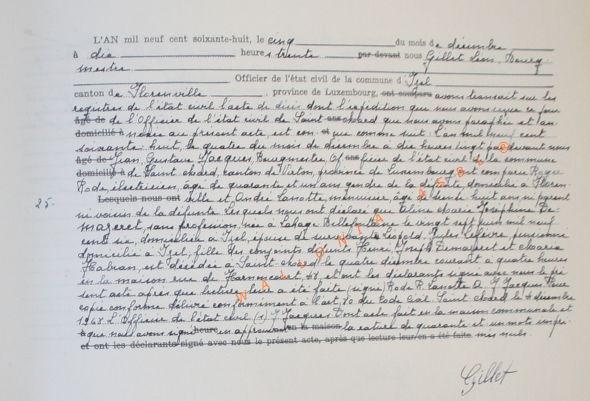 L'AN mil neuf cent soixante-huit, le cinq du mois de décembre
à dix heures trente par-devant nous Gillet Léon, Bourg-
mestre Officier de l'état civil de la commune d'Izel
canton de Florenville, province de Luxembourg, ont comparu avons transcrit sur les
registres de l'état civil l'acte de décès dont l'expédition que nous avons reçue ce jour
âgé de de l'Officier de l'état civil de Saint-Mard que nous avons paraphée et an-
domicilié à nexée au présent acte, est con- et que comme suit: L'an mil neuf cent
soixante-huit, le quatre du mois de décembre à dix heures vingt par devant nous
âgé de Jean, Gustave Jacques, Bourgmestre, Of- ans ficier de l'état civil de la commune
domicilié à de Saint-Mard, canton de Virton, province de Luxembourg, ont comparu Roger
Rode, électricien, âgé de quarante et un ans, gendre de la défunte, domicilié à Floren-
Lesquels nous ont ville et André Lanotte, menuisier, âgé de ans, ni parent
25.
ni voisin de la défunte. Lesquels nous ont déclaré que Céline Marie Joséphine De-
maret, sans profession, née à Lahage Bellefontaine le vingt-sept juin mil neuf
cent six, domiciliée à Izel, épouse de Léopold Lefèvre, pensionné
domicilié à Izel, fille des conjoints défunts Henri Joseph Demaret et Maria
est décédée à Saint-Mard le quatre décembre courant à quatre heures
en la maison rue de Harnoncourt, 48, et ont les déclarants signé avec nous le pré-
sent acte après que lecture leur a été faite (signé) Rode R. Lanotte A. J. Jacques. Pour
copie conforme délivré conformément à l'art. 80 du Code Civil. Saint-Mard le 4 décembre
1968. L'Officier de l'état civil (s) J. Jacques. Dont acte fait en la maison communale et
à que nous avons signé heure en approuvant en la maison la rature de quarante et un mots impri-
et ont les déclarants signé avec nous le présent acte, après que lecture leur en a été faite més nuls.
Gillet
WALLONIA ASBL ©